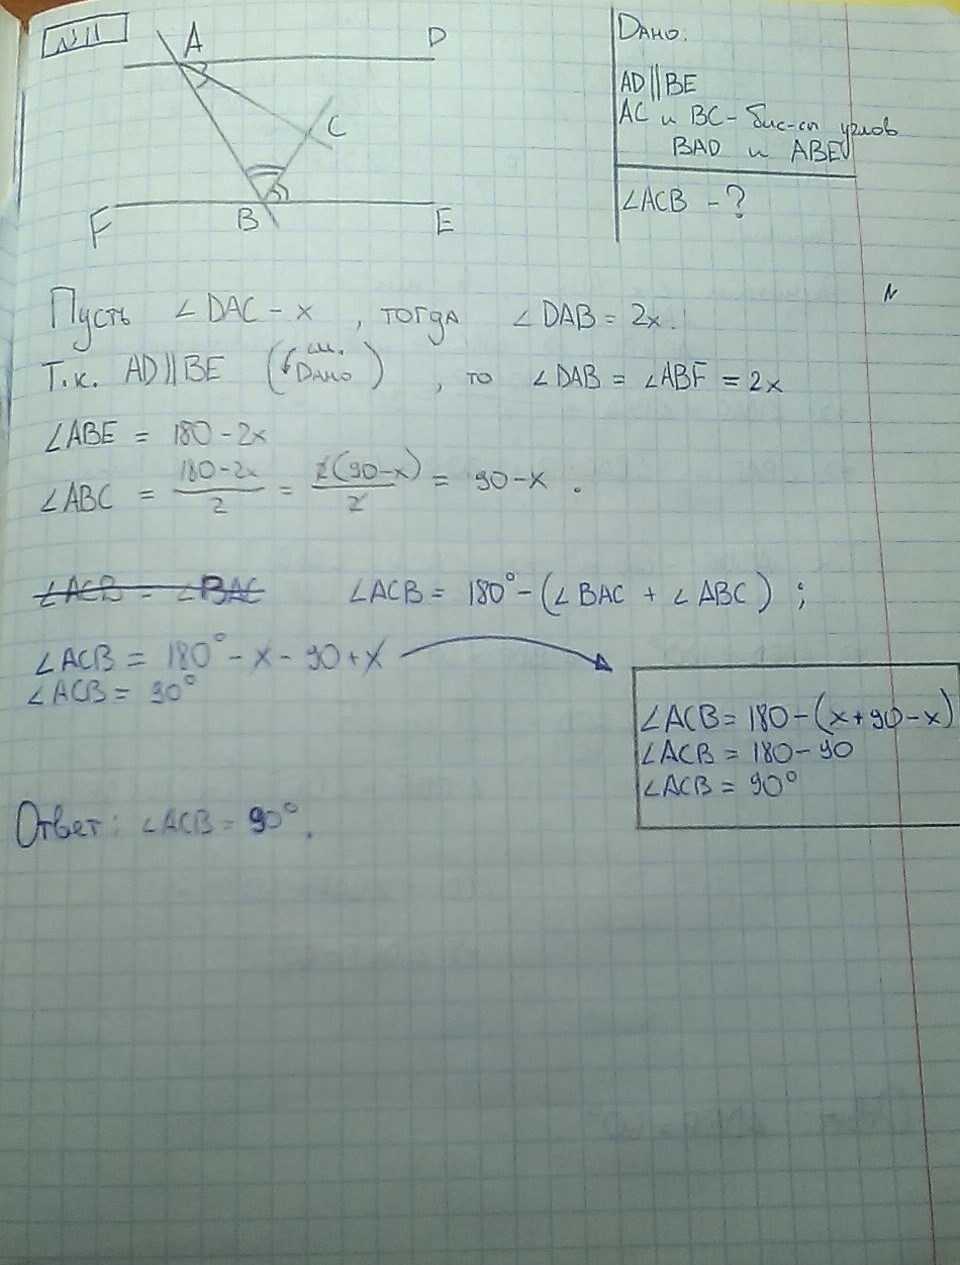 N11
A
D
C
F
B
E
Дано:
AD||BE
AC и BC - бис-сы углов
BAD и ABE
∠ACB - ?
Пусть ∠DAC - x , тогда ∠DAB = 2x.
Т.к. AD||BE (см. Дано) , то ∠DAB = ∠ABF = 2x
∠ABE = 180 - 2x
∠ABC = 180-2x/2 = 2(90-x)/2 = 90-x .
∠ACB = ∠BAC ∠ACB = 180° - (∠BAC + ∠ABC) ;
∠ACB = 180° - x - 90 + x
∠ACB = 90°
∠ACB = 180 - (x+90-x)
∠ACB = 180 - 90
∠ACB = 90°
Ответ: ∠ACB = 90°.